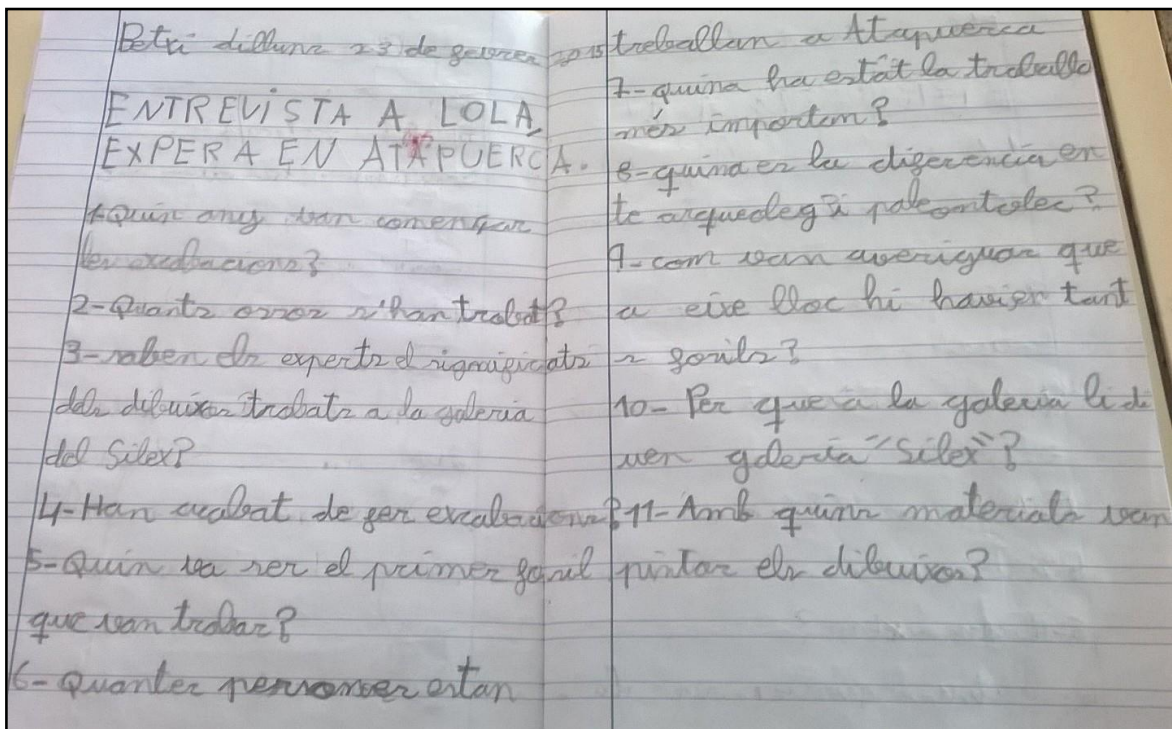 Betxí dilluns 23 de febrer 2015
ENTREVISTA A LOLA,
EXPERA EN ATAPUERCA.
1-Quin any van comensar
les excabacions?
2-Quants ossos s'han trobat?
3-saben els experts el significats
dels dibuixos trobats a la galeria
del Silex?
4-Han acabat de fer excabacions?
5-Quin va ser el primer fosil
que van trobar?
6-Quantes persones estan
treballan a Atapuerca
7-quina ha estat la troballa
més importan?
8-quina es la diferencia en
te arqueoleg i paleontolec?
9-com van averiguar que
a eixe lloc hi havien tant
s fosils?
10- Per que a la galeria li di
uen galeria "Silex"?
11- Amb quins materials van
pintar els dibuixos?